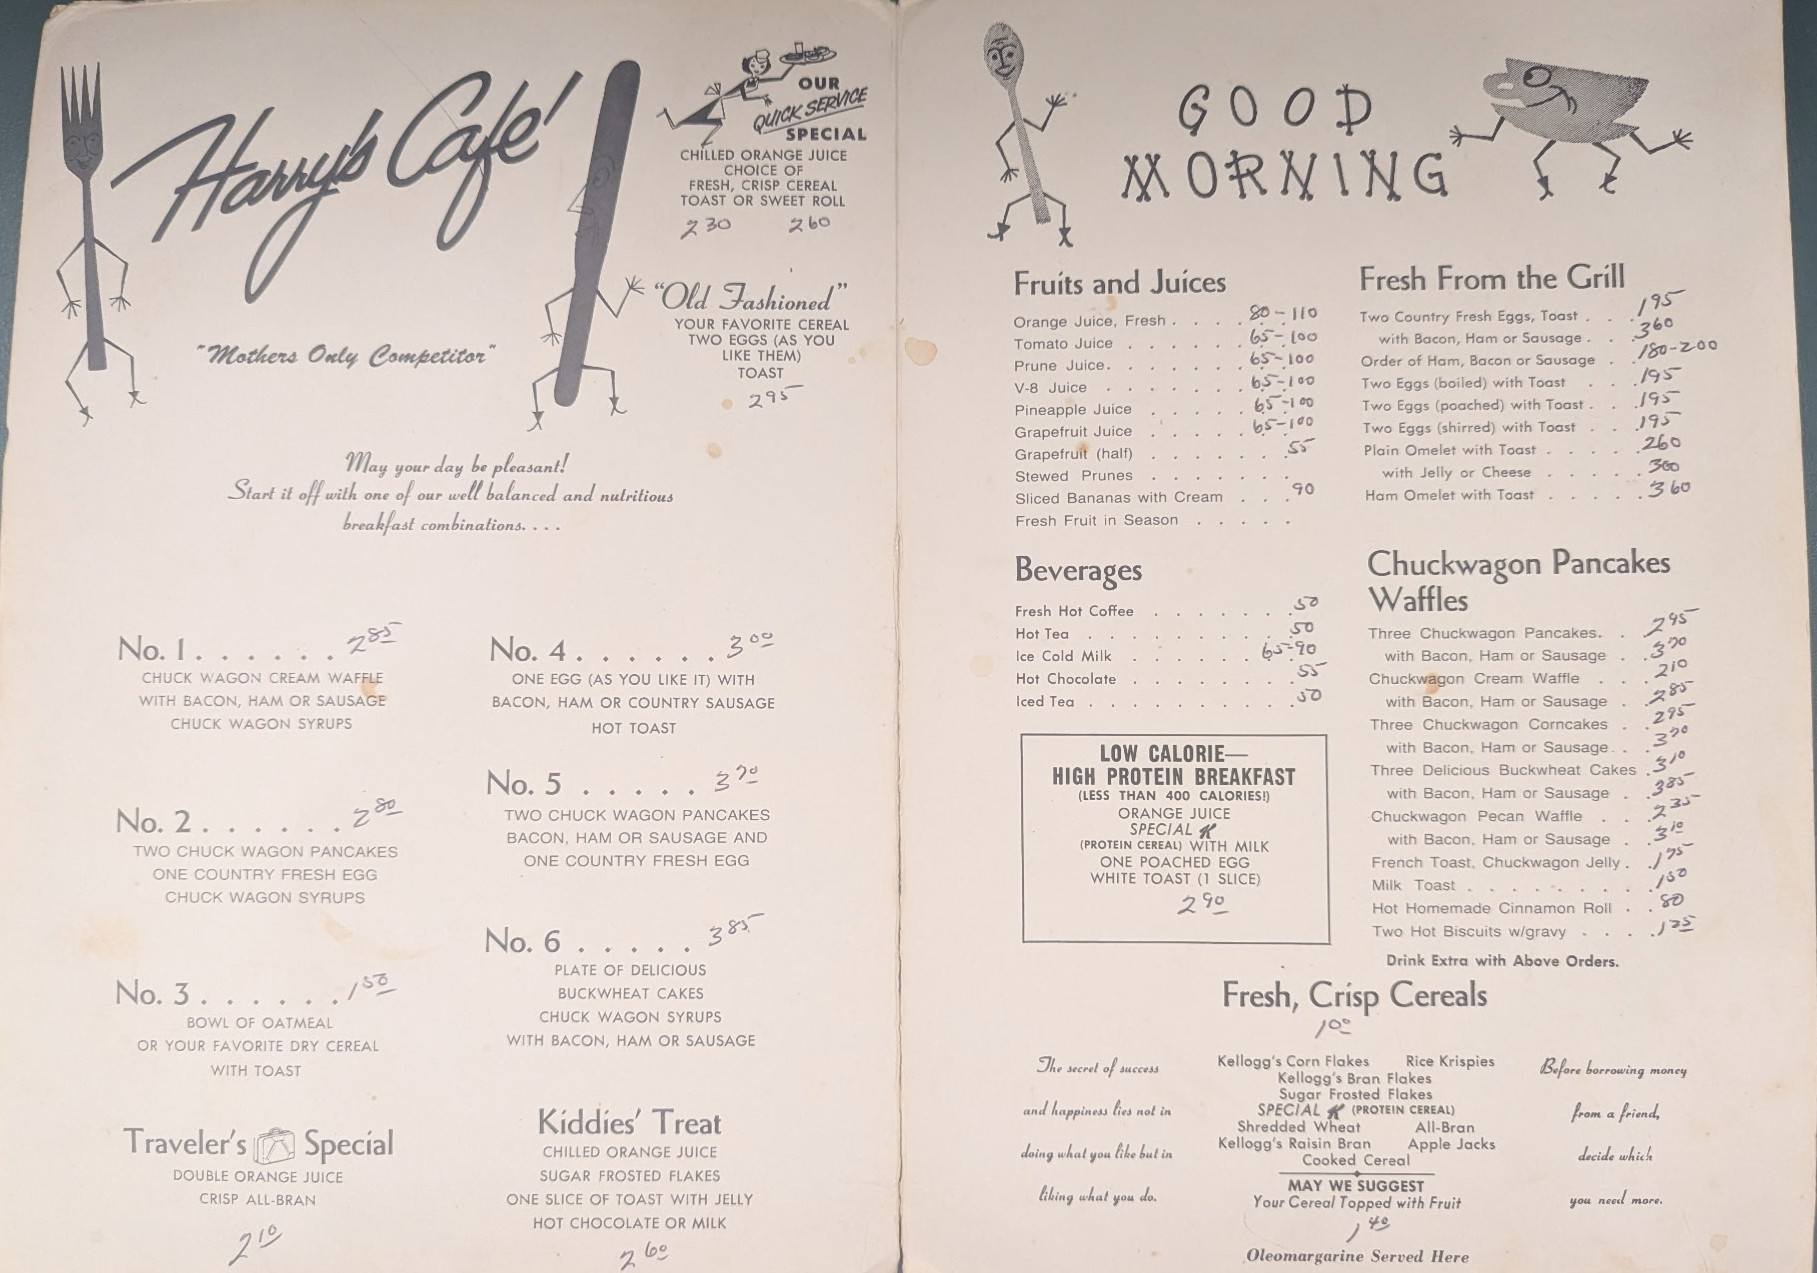 Harry's Café
"Mothers Only Competitor"
OUR
QUICK SERVICE
SPECIAL
CHILLED ORANGE JUICE
CHOICE OF
FRESH, CRISP CEREAL
TOAST OR SWEET ROLL
230 260
"Old Fashioned"
YOUR FAVORITE CEREAL
TWO EGGS (AS YOU
LIKE THEM)
TOAST
295
May your day be pleasant!
Start it off with one of our well balanced and nutritious
breakfast combinations. . . .
No. 1 . . . . . . 285
CHUCK WAGON CREAM WAFFLE
WITH BACON, HAM OR SAUSAGE
CHUCK WAGON SYRUPS
No. 2 . . . . . . 280
TWO CHUCK WAGON PANCAKES
ONE COUNTRY FRESH EGG
CHUCK WAGON SYRUPS
No. 3 . . . . . . 150
BOWL OF OATMEAL
OR YOUR FAVORITE DRY CEREAL
WITH TOAST
Traveler's Special
DOUBLE ORANGE JUICE
CRISP ALL-BRAN
210
No. 4 . . . . . . 300
ONE EGG (AS YOU LIKE IT) WITH
BACON, HAM OR COUNTRY SAUSAGE
HOT TOAST
No. 5 . . . . . 370
TWO CHUCK WAGON PANCAKES
BACON, HAM OR SAUSAGE AND
ONE COUNTRY FRESH EGG
No. 6 . . . . . 385
PLATE OF DELICIOUS
BUCKWHEAT CAKES
CHUCK WAGON SYRUPS
WITH BACON, HAM OR SAUSAGE
Kiddies' Treat
CHILLED ORANGE JUICE
SUGAR FROSTED FLAKES
ONE SLICE OF TOAST WITH JELLY
HOT CHOCOLATE OR MILK
260
GOOD
MORNING
Fruits and Juices
Orange Juice, Fresh . . . . 80-110
Tomato Juice . . . . . . 65-100
Prune Juice . . . . . . . 65-100
V-8 Juice . . . . . . . 65-100
Pineapple Juice . . . . . 65-100
Grapefruit Juice . . . . . 65-100
Grapefruit (half) . . . . . . .55
Stewed Prunes . . . . . . .
Sliced Bananas with Cream . . .90
Fresh Fruit in Season . . . . .
Beverages
Fresh Hot Coffee . . . . . . .50
Hot Tea . . . . . . . . . .50
Ice Cold Milk . . . . . . 65-90
Hot Chocolate . . . . . . . .55
Iced Tea . . . . . . . . . .50
LOW CALORIE—
HIGH PROTEIN BREAKFAST
(LESS THAN 400 CALORIES!)
ORANGE JUICE
SPECIAL K
(PROTEIN CEREAL) WITH MILK
ONE POACHED EGG
WHITE TOAST (1 SLICE)
290
Fresh From the Grill
Two Country Fresh Eggs, Toast . . . 195
with Bacon, Ham or Sausage . . . 360
Order of Ham, Bacon or Sausage . . 180-200
Two Eggs (boiled) with Toast . . . 195
Two Eggs (poached) with Toast . . . 195
Two Eggs (shirred) with Toast . . . 195
Plain Omelet with Toast . . . . . 260
with Jelly or Cheese . . . . . 300
Ham Omelet with Toast . . . . . 360
Chuckwagon Pancakes
Waffles
Three Chuckwagon Pancakes . . . 295
with Bacon, Ham or Sausage . . 370
Chuckwagon Cream Waffle . . . 210
with Bacon, Ham or Sausage . . 285
Three Chuckwagon Corncakes . . 295
with Bacon, Ham or Sausage . . 370
Three Delicious Buckwheat Cakes . 310
with Bacon, Ham or Sausage . . 385
Chuckwagon Pecan Waffle . . . 235
with Bacon, Ham or Sausage . . 310
French Toast, Chuckwagon Jelly . . 175
Milk Toast . . . . . . . . . 150
Hot Homemade Cinnamon Roll . . 80
Two Hot Biscuits w/gravy . . . . 125
Drink Extra with Above Orders.
Fresh, Crisp Cereals
100
Kellogg's Corn Flakes Rice Krispies
Kellogg's Bran Flakes
Sugar Frosted Flakes
SPECIAL K (PROTEIN CEREAL)
Shredded Wheat All-Bran
Kellogg's Raisin Bran Apple Jacks
Cooked Cereal
MAY WE SUGGEST
Your Cereal Topped with Fruit
140
Oleomargarine Served Here
The secret of success
and happiness lies not in
doing what you like but in
liking what you do.
Before borrowing money
from a friend,
decide which
you need more.